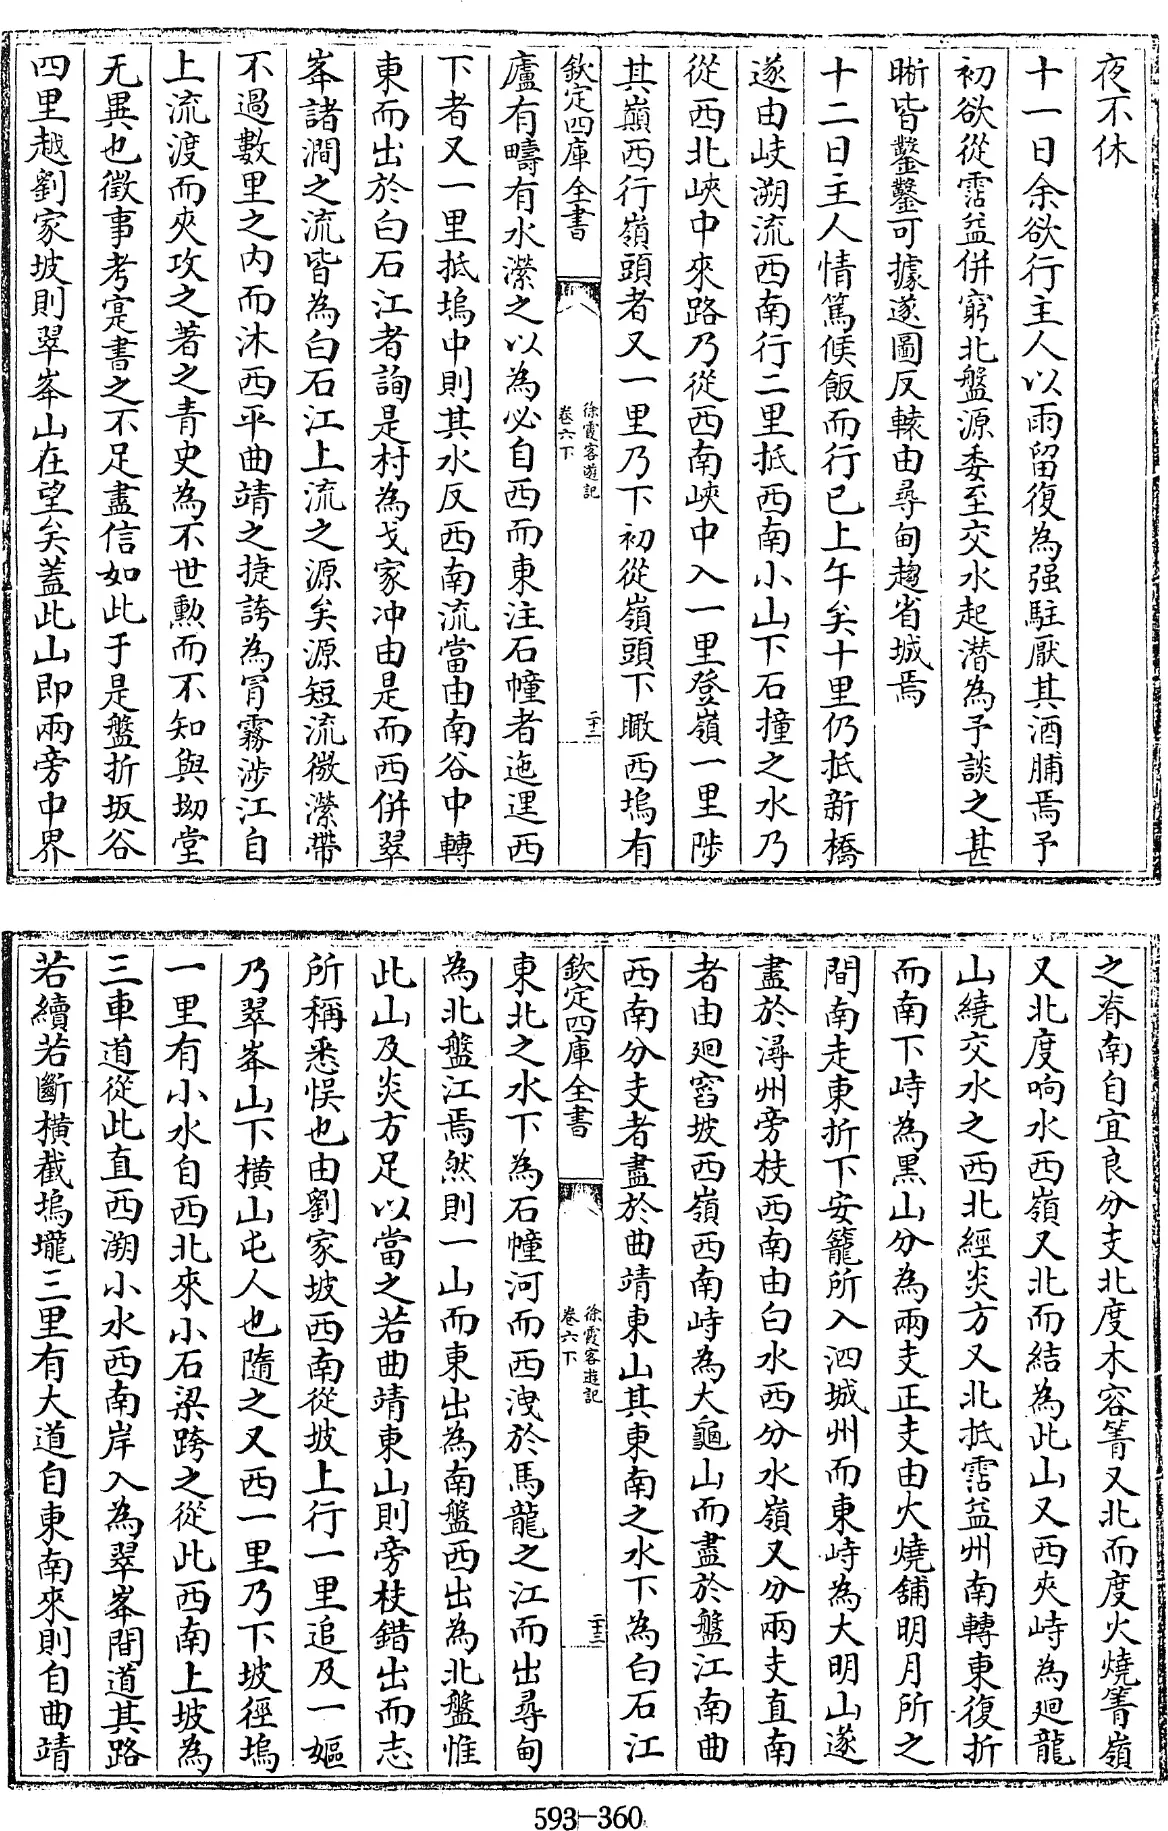 夜不休
十一日余欲行主人以雨留復為强駐厭其酒脯焉予
初欲從霑益併窮北盤源委至交水起潛為予談之甚
晰皆鑿鑿可據遂圖反轅由尋甸趨省城焉
十二日主人情篤候飯而行已上午矣十里仍抵新橋
遂由岐溯流西南行二里抵西南小山下石撞之水乃
從西北峽中來路乃從西南峽中入一里登嶺一里陟
其巔西行嶺頭者又一里乃下初從嶺頭下瞰西塢有
欽定四庫全書
徐霞客遊記
卷六下
二十二
廬有疇有水瀠之以為必自西而東注石幢者迤邐西
下者又一里抵塢中則其水反西南流當由南谷中轉
東而出於白石江者詢是村為戈家冲由是而西併翠
峯諸澗之流皆為白石江上流之源矣源短流微瀠帶
不過數里之内而沐西平曲靖之捷誇為冐霧涉江自
上流渡而夾攻之著之青史為不世勲而不知與坳堂
无異也徵事考寔書之不足盡信如此于是盤折坂谷
四里越劉家坡則翠峯山在望矣蓋此山即兩旁中界
之脊南自宜良分支北度木容箐又北而度火燒箐嶺
又北度响水西嶺又北而結為此山又西夾峙為廻龍
山繞交水之西北經炎方又北抵霑益州南轉東復折
而南下峙為黒山分為兩支正支由火燒舖明月所之
間南走東折下安籠所入泗城州而東峙為大明山遂
盡於潯州旁枝西南由白水西分水嶺又分兩支直南
者由廻窞坡西嶺西南峙為大龜山而盡於盤江南曲
西南分支者盡於曲靖東山其東南之水下為白石江
欽定四庫全書
徐霞客遊記
卷六下
二十三
東北之水下為石幢河而西洩於馬龍之江而出尋甸
為北盤江焉然則一山而東出為南盤西出為北盤惟
此山及炎方足以當之若曲靖東山則旁枝錯出而志
所稱悉悞也由劉家坡西南從坡上行一里追及一嫗
乃翠峯山下横山屯人也隨之又西一里乃下坡徑塢
一里有小水自西北來小石梁跨之從此西南上坡為
三車道從此直西溯小水西南岸入為翠峯間道其路
若續若斷横截塢壠三里有大道自東南來則自曲靖
593-360